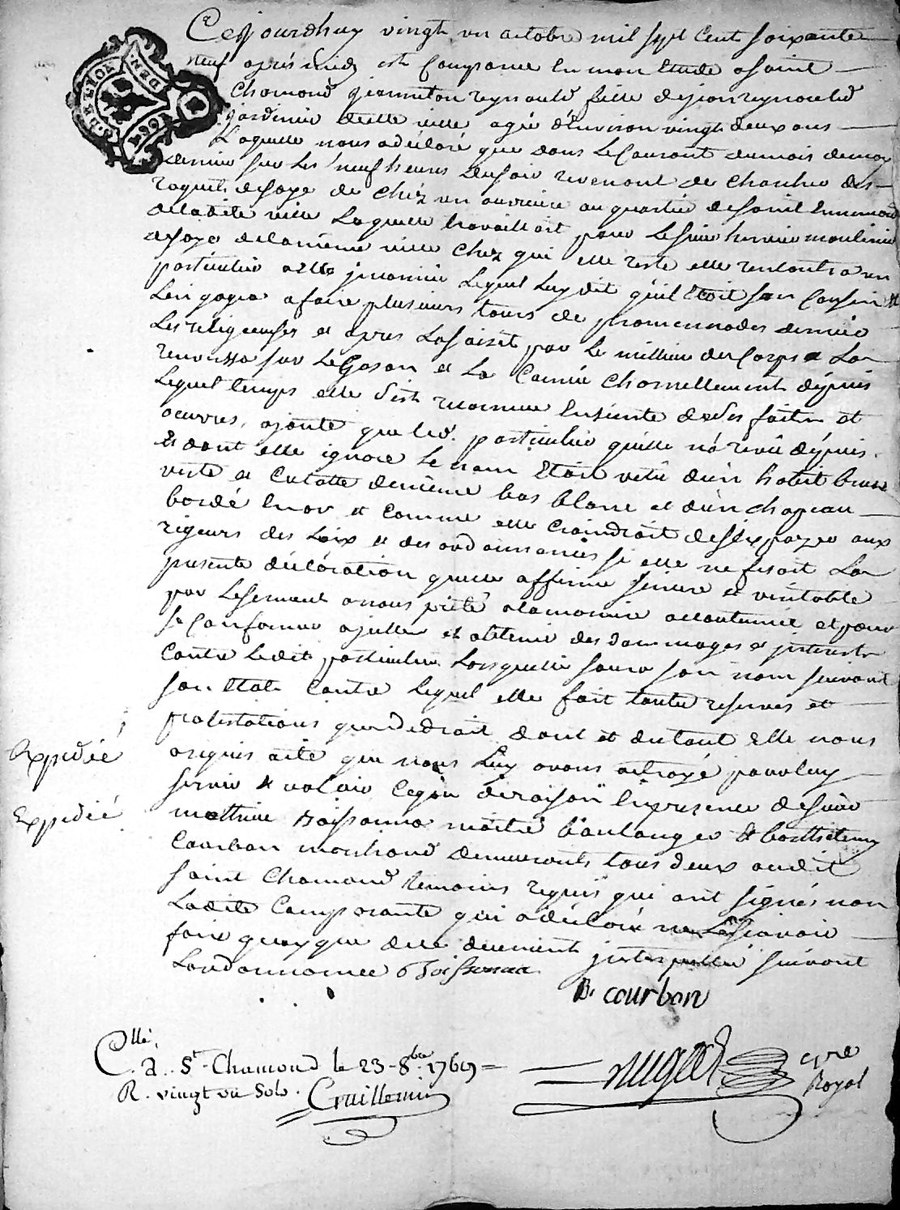 Cejourdhuy vingt un octobre mil sept cent soixante
neuf après midy est Comparue En mon Etude a saint
Chamond jeanneton reynaud fille de jean reynaud
jardinier de cette ville agée d'Environ vingt deux ans
Laquelle nous a déclaré que dans Le Courant du mois de may
dernier sur Les neuf heures du soir revenant de chercher des
roquets de soye de chéz un ouvriere au quartier de saint Ennemond
de la dite ville Laquelle travailloit pour Le sieur moulinier
de soye de la même ville chez qui elle reste elle rencontra un
particulier a elle inconnu Lequel Luy dit qu'il Etoit son Cousin et
L'engagea a faire plusieurs tours de promenades derriere
Les religieuses et apres La saisit par Le millieu du Corps et La
renversa sur Le Gason et La Connû charnellement depuis
Lequel temps elle s'est reconnue Enceinte de ses faits et
oeuvres, ajoute que led. particulier qu'elle n'a revû depuis
et dont elle ignore Le nom Etoit vetû d'un habit
veste et Culotte de même bas blanc et d'un chapeau
bordé En or et comme elle craindroit de s'exposer aux
rigeurs des Loix et des ordonnances si elle ne fesoit La
presente déclaration qu'elle affirme sincere et véritable
par Le serment a nous prété a la maniere accoutumée et pour
se Conformer a juller et obtenir des dommages et interests
Contre Le dit particulier Lorsqu'elle saura son nom suivant
son Etat Contre Lequel elle fait toutes reserves et
protestations que de droit dont et du tout elle nous
a requis acte que nous Luy avons octroyé pour luy
servir et valoir Ce que de raison En presence de sieur
mathieu Boissonna maitre boulanger et barthelemy
Courbon marchand demeurants tous deux audit
saint Chamond temoins requis qui ont signés non
Ladite Comparante qui a déclaré ne Le sçavoir
faire quoyque de ce duement interpellée suivant
L'ordonnance Boissonna
B. courbon
Expedié
Expedié
Cllé,
C. a St Chamond le 23 8bre 1769
R. vingt un Sols. Guillemin
nre
Royal